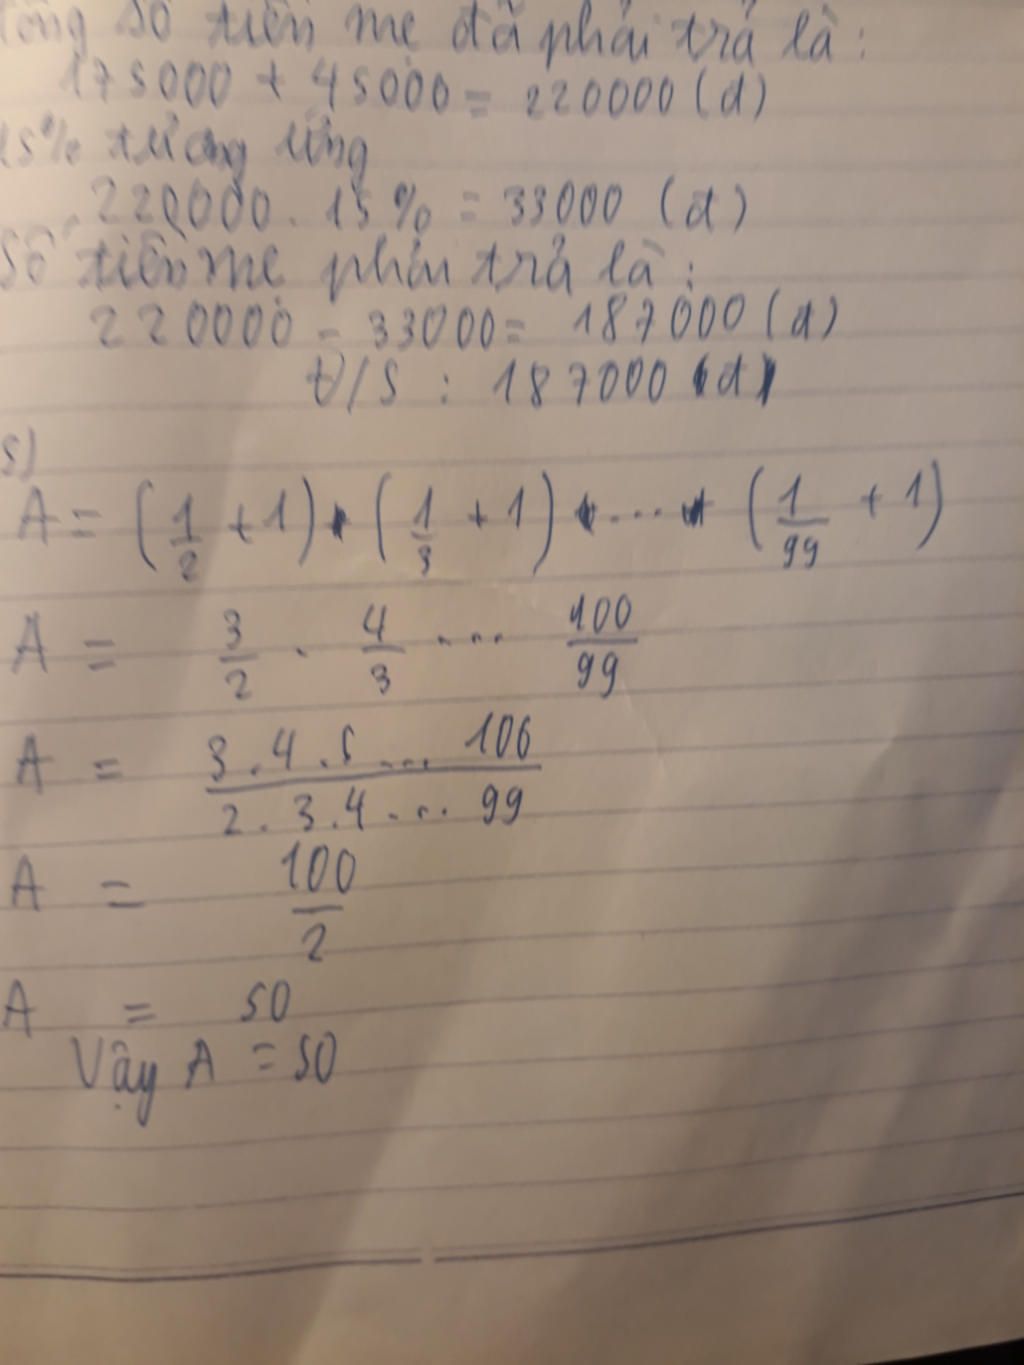 Tổng số tiền mẹ đã phải trả là:
175000 + 45000 = 220000 (đ)
15% tương ứng
220000 . 15% = 33000 (đ)
Số tiền mẹ phải trả là:
220000 - 33000 = 187000 (đ)
Đ/S : 187000 (đ)
5)
A = (1/2 + 1) . (1/3 + 1) . ... . (1/99 + 1)
A = 3/2 . 4/3 ... 100/99
A = 3.4.5...100 / 2.3.4...99
A = 100/2
A = 50
Vậy A = 50